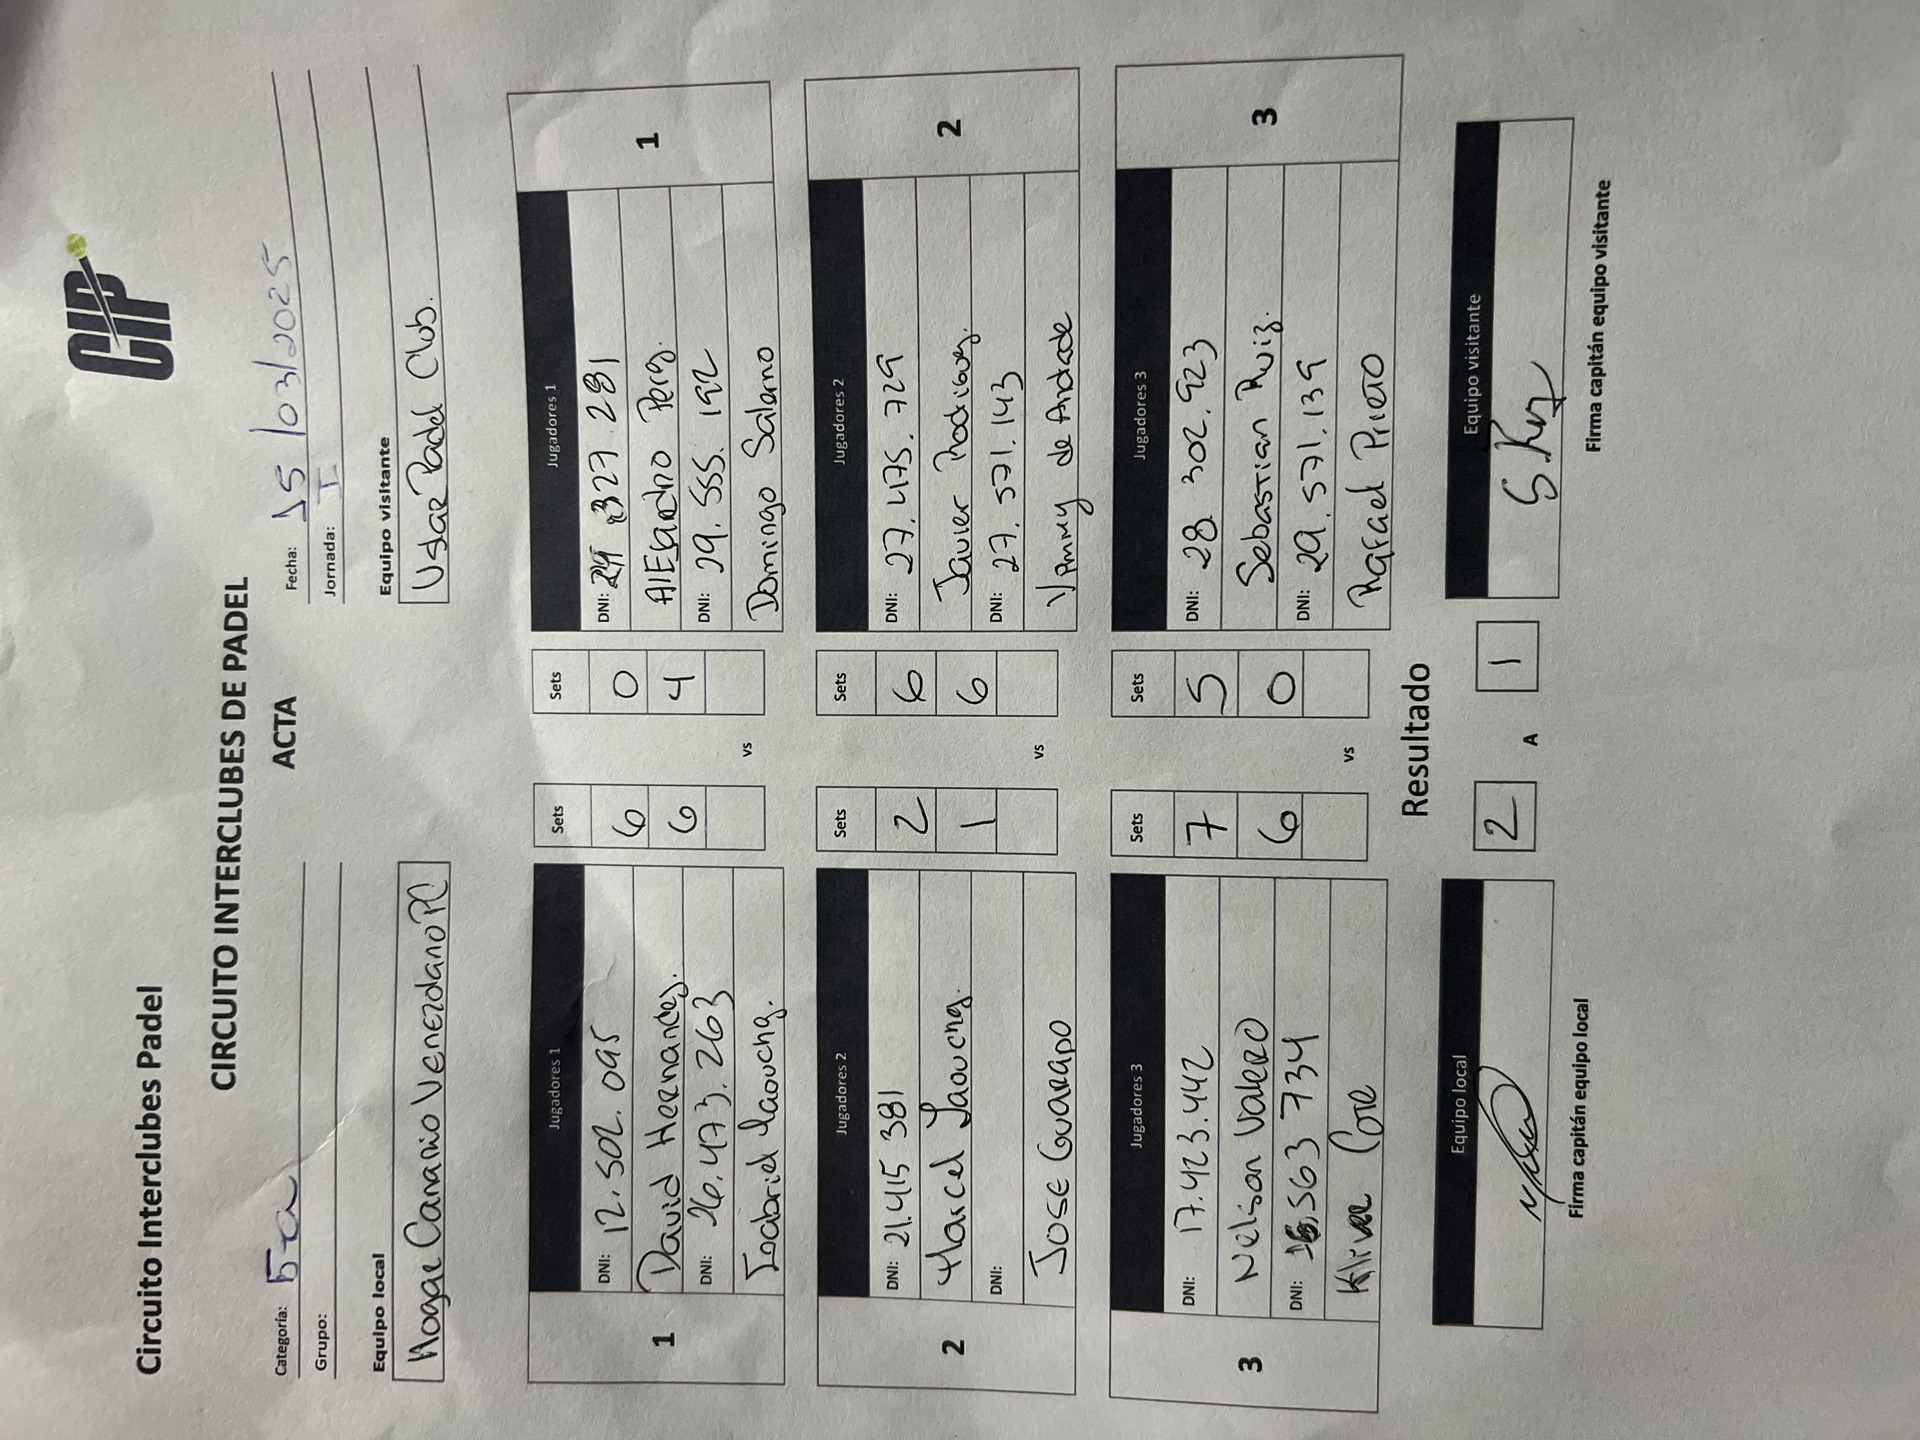 Circuito Interclubes Padel
CIP
CIRCUITO INTERCLUBES DE PADEL
ACTA
Categoría: 5ta
Fecha: 15/03/2025
Grupo:
Jornada: I
Equipo local
Equipo visitante
Hogar Canario Venezolano PC
Uslar Padel Club.
Jugadores 1
Sets
Sets
Jugadores 1
1
DNI: 12.502.095
6
0
DNI: 327.281
1
David Hernandez.
6
4
Perez.
DNI: 26.473.263
DNI: 29.555.192
vs
Domingo Salerno
Jugadores 2
Sets
Sets
Jugadores 2
2
DNI: 21.415 381
2
6
DNI: 27.475.729
2
Marcel
1
6
Javier Rodriguez.
DNI:
DNI: 27.571.143
Jose Guarapo
vs
de Andrade
Jugadores 3
Sets
Sets
Jugadores 3
3
DNI: 17.423.442
7
5
DNI: 28.302.923
3
Nelson Valero
6
0
Sebastian Ruiz.
DNI: 563 734
DNI: 29.571.139
vs
Rafael Prieto
Resultado
Equipo local
2
A
1
Equipo visitante
Firma capitán equipo local
Firma capitán equipo visitante